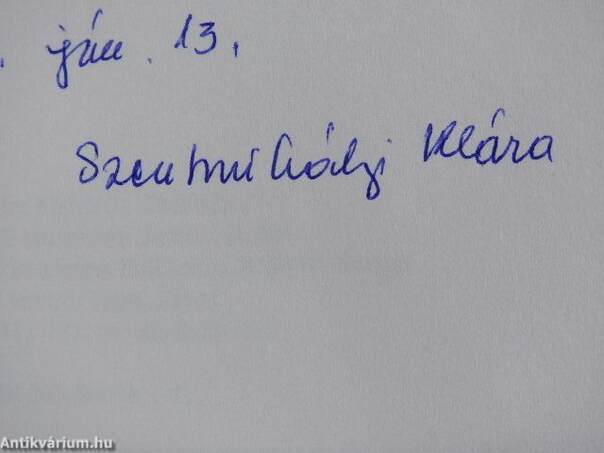 . jún. 13.
Szentmihályi Klára
Antikvárium.hu